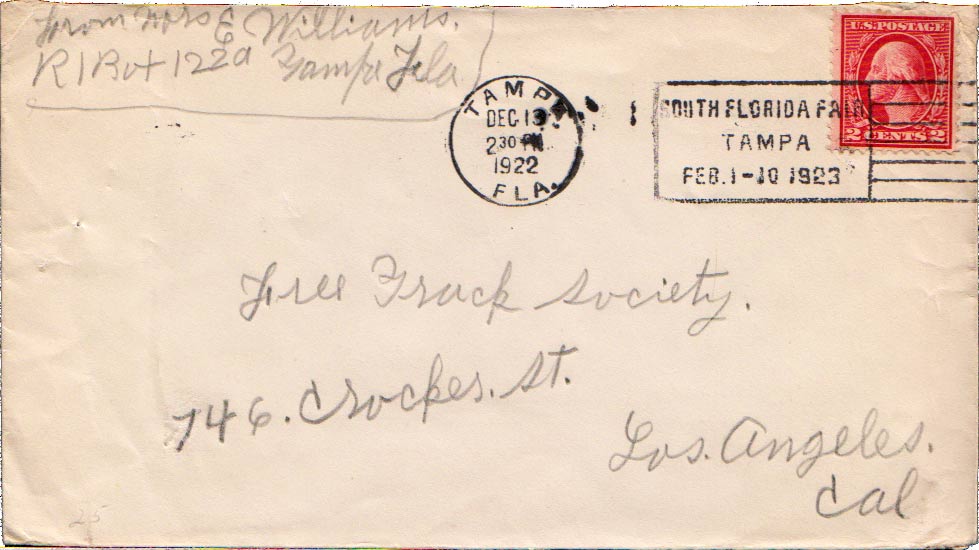 From Mrs E Williams.
R 1 Box 122a Tampa Fla
U.S. POSTAGE
2 CENTS 2
TAMPA
DEC 13
2 30 PM
1922
FLA.
SOUTH FLORIDA FAIR
TAMPA
FEB. 1-10 1923
Free Track Society.
746. Crocker. St.
Los. Angeles.
Cal
25